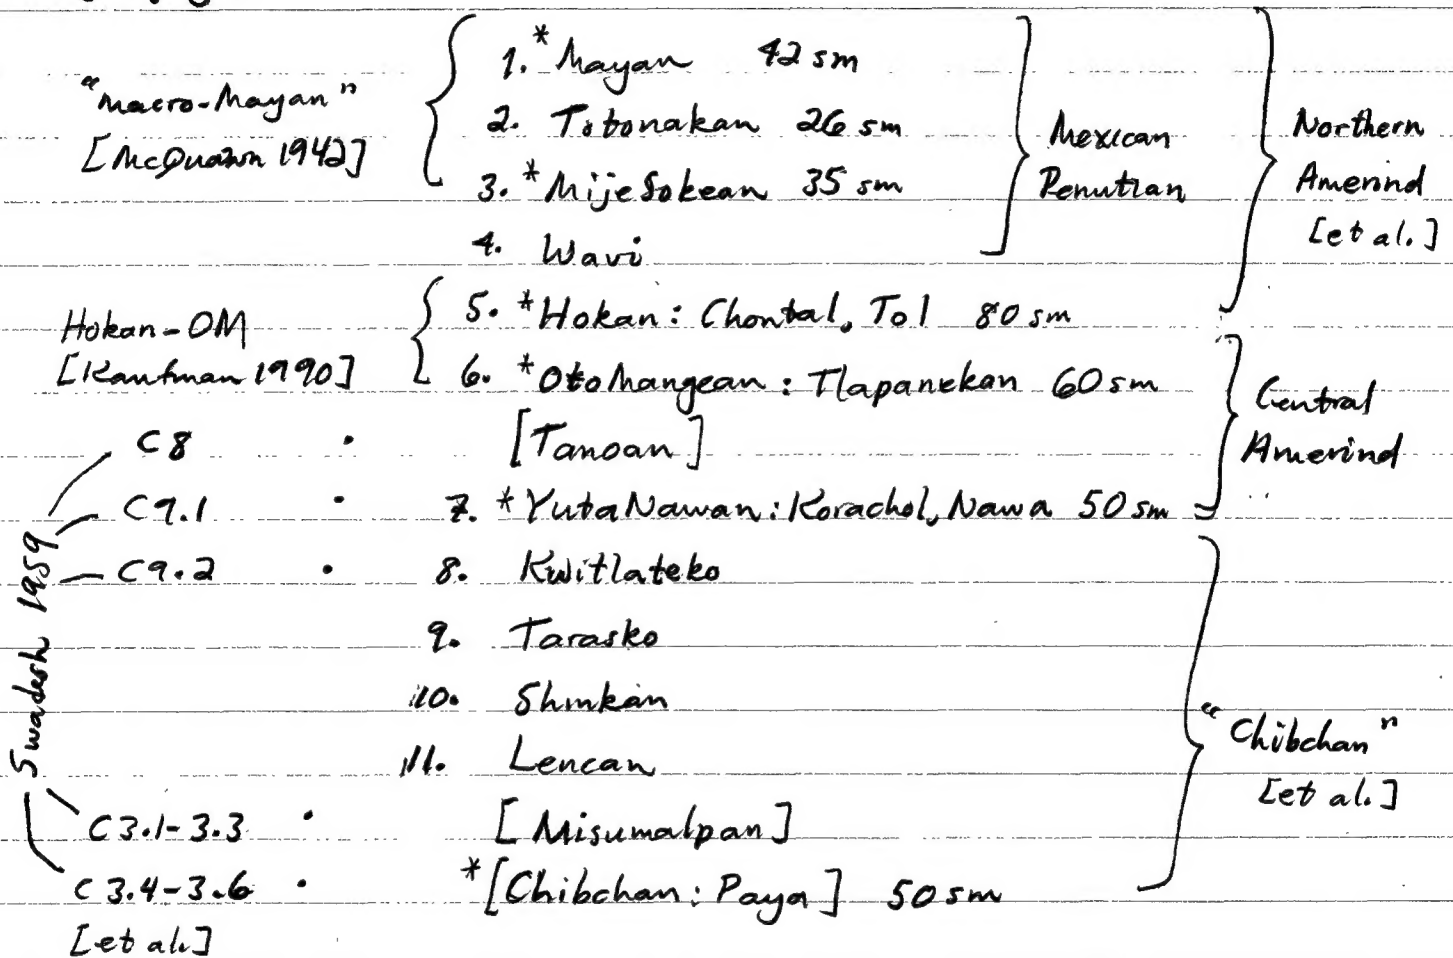 "Macro-Mayan"
[McQuown 1942]
1. *Mayan 42 sm
2. Totonakan 26 sm
3. *MijeSokean 35 sm
4. Wavi
Mexican
Penutian
Northern
Amerind
[et al.]
Hokan-OM
[Kaufman 1990]
5. *Hokan: Chontal, Tol 80 sm
6. *OtoMangean: Tlapanekan 60 sm
C8 · [Tanoan]
C9.1 · 7. *YutaNawan: Korachol, Nawa 50 sm
Central
Amerind
C9.2 · 8. Kwitlateko
9. Tarasko
10. Shinkan
11. Lencan
C3.1-3.3 · [Misumalpan]
C3.4-3.6 · *[Chibchan: Paya] 50 sm
[et al.]
Swadesh 1959
"Chibchan"
[et al.]